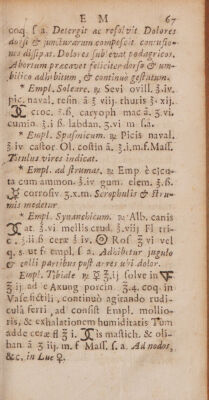 E M 67
coq. ſ a. Detergit ac reſolvit Dolores
dorſi & juncturarum compeſcit contuſio-
nes diſſipat. Dolores ſublevat podagricos.
Abortum præcavet feliciter dorſo & um-
bilico adhibitum, & continuò geſtatum.
* Empl. Soleare. ℞ Sevi ovill. ℥.iv.
pic. naval. reſin. a ℥ viij. thuris ℥. xij.
croc. ℥.ß. caryoph mac a ʒ. vi.
cumin. ʒ.i ß. labdan. ʒ.vi m ſ.a.
* Empl. Spaſmicum. ℞ Picis naval.
℥.iv caſtor Ol. coſtin a ℥.i.m.f.Maſſ.
Totulus vires indicat.
* Empl. ad ſtrumas. ℞ Emp è cicu-
ta cum ammon. ℥.iv gum. elem. ℥.ß.
corroſiv. ʒ.x.m. Scrophulis & ſtru-
mis medetur.
* Empl. Synanchicum. ℞ Alb. canis
at. ℥.vi mellis crud. ℥.viij Fl tri-
c. ℥.iiß ceræ ℥ iv. Roſ ℥ vi vel
q. s. ut f. empl. ſ a. Adhibetur jugulo
& colli partibus poſt aures ubi dolor.
Empl. Tibiale ℞ ℥.ij ſolve in
℥ ij ad e Axung porcin. ℥.4. coq. in
Vaſe fictili, continuò agitando rudi-
culâ ferri, ad conſiſt Empl. mollio-
ris, & exhalationem humiditatis Tum
adde ceræ fl ℥ i. is maſtich. & oli-
han. a ʒ iij. m f Maſſ. ſ. a. Ad nodos,
&c. in Lue